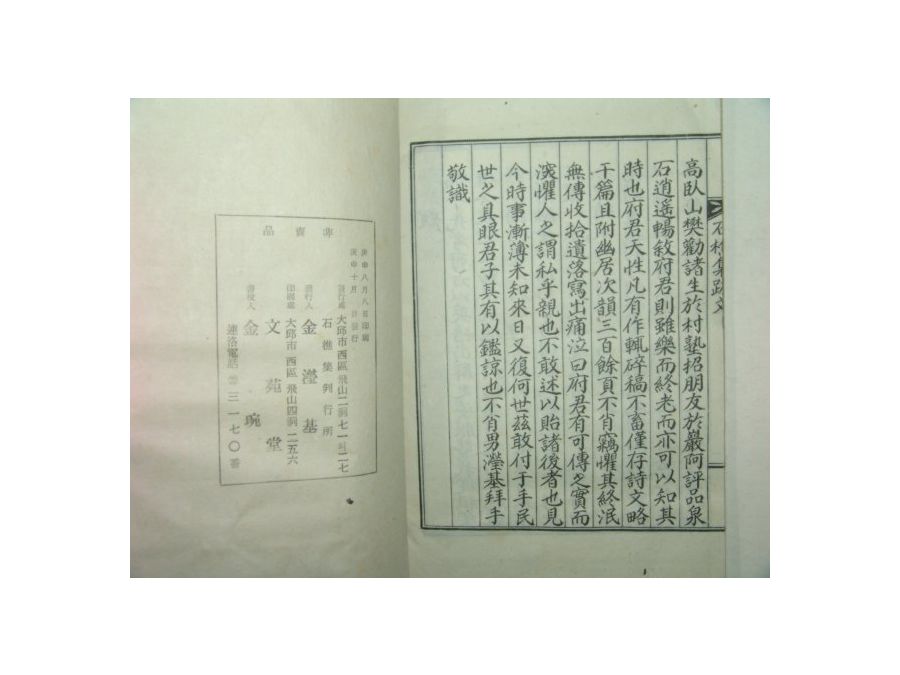 高臥山樊勸諸生於村塾招朋友於巖阿評品泉
石逍遥暢敘府君則雖樂而終老而亦可以知其
時也府君天性凡有作輒碎稿不畜僅存詩文略
干篇且附幽居次韻三百餘頁不肖竊懼其終泯
無傳收拾遺落寫出痛泣曰府君有可傳之實而
深懼人之謂私乎親也不敢述以貽諸後者也見
今時事漸簿未知來日又復何世茲敢付于手民
世之具眼君子其有以鑑諒也不肖男瀅基拜手
敬識
石樵集跋文
非賣品
庚申八月八日印刷
庚申十月 日發行
發行處 大邱市西區飛山二洞七一의二七
石樵集刊行所
發行人 金瀅基
印刷處 大邱市西區飛山四洞二五六
文苑堂
書役人 金琬
連洛電話 三一七〇番